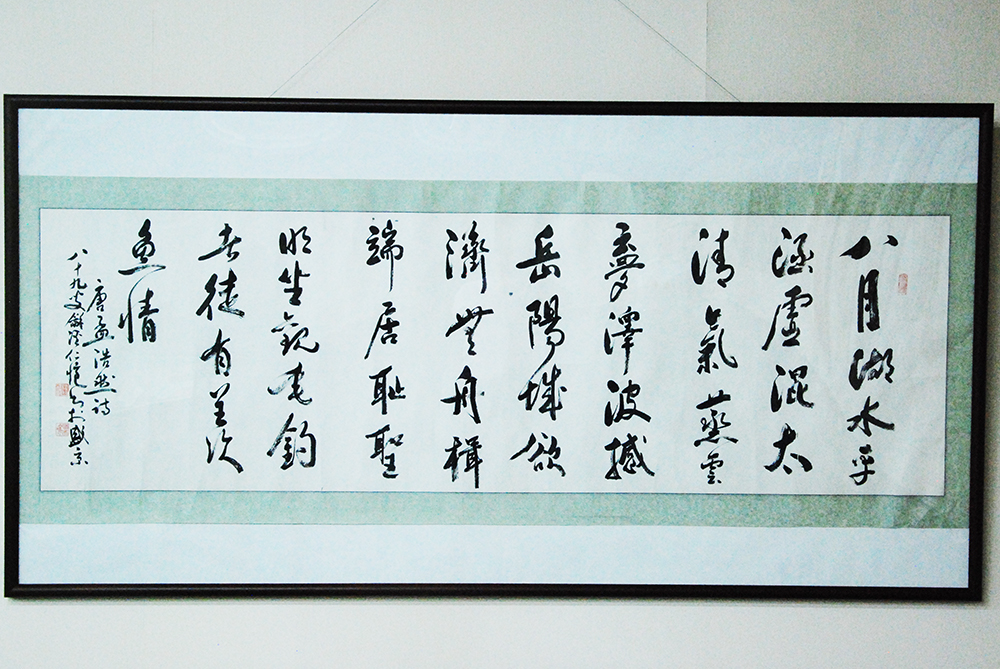 八月湖水平
涵虛混太
清氣蒸雲
夢澤波撼
岳陽城欲
濟無舟楫
端居耻聖
明坐觀垂釣
者徒有羨
魚情
唐孟浩然詩
八十九叟龢溪仁愷書於盛京